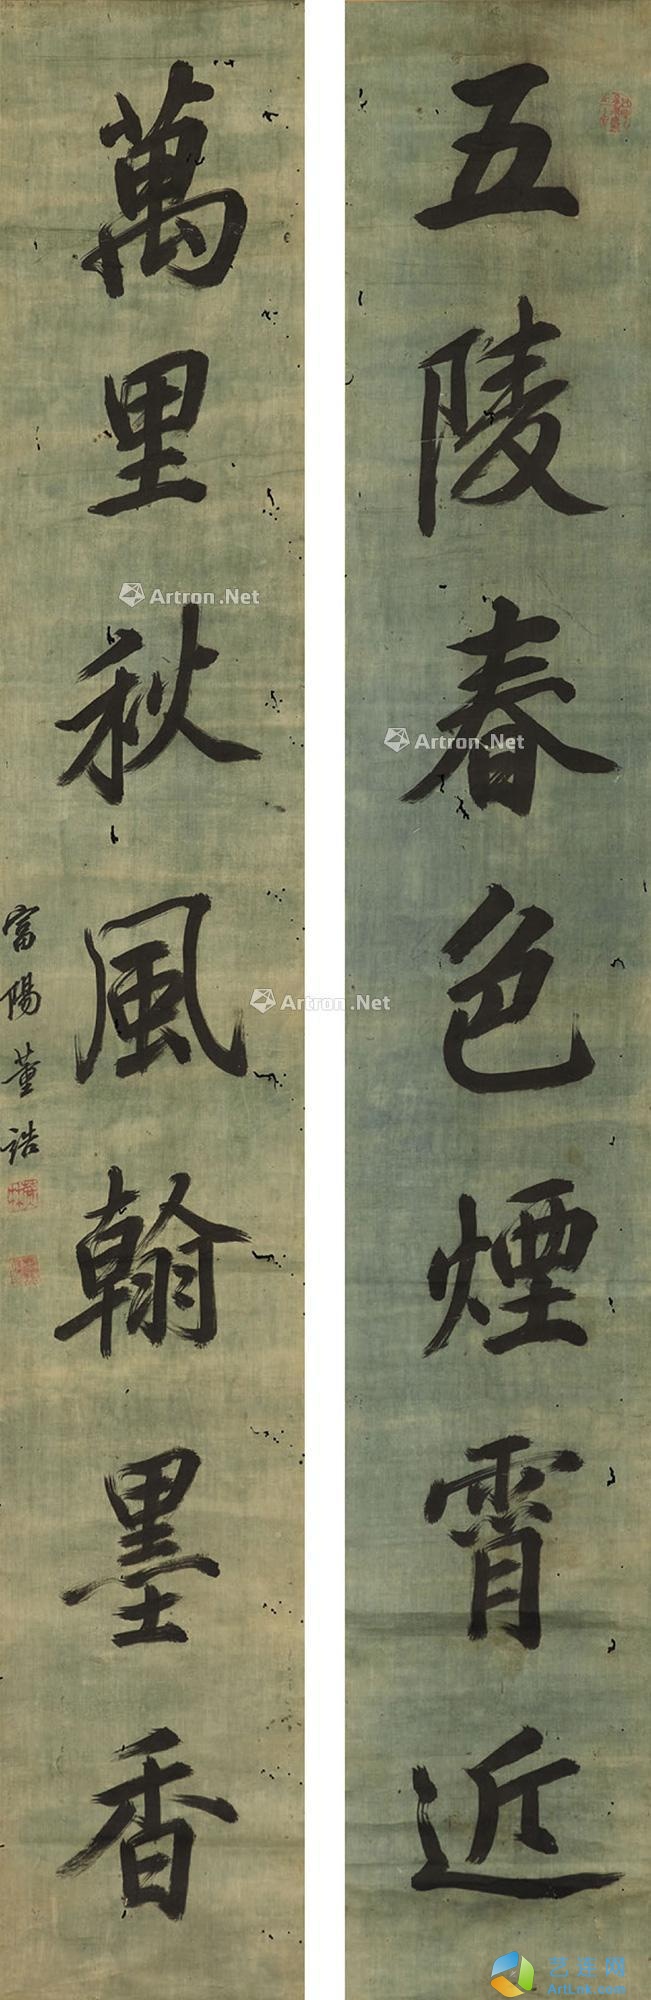 五陵春色煙霄近
萬里秋風翰墨香
富陽董誥
Artron.Net
Artron.Net
Artron.Net
艺连网
ArtLnk.Com